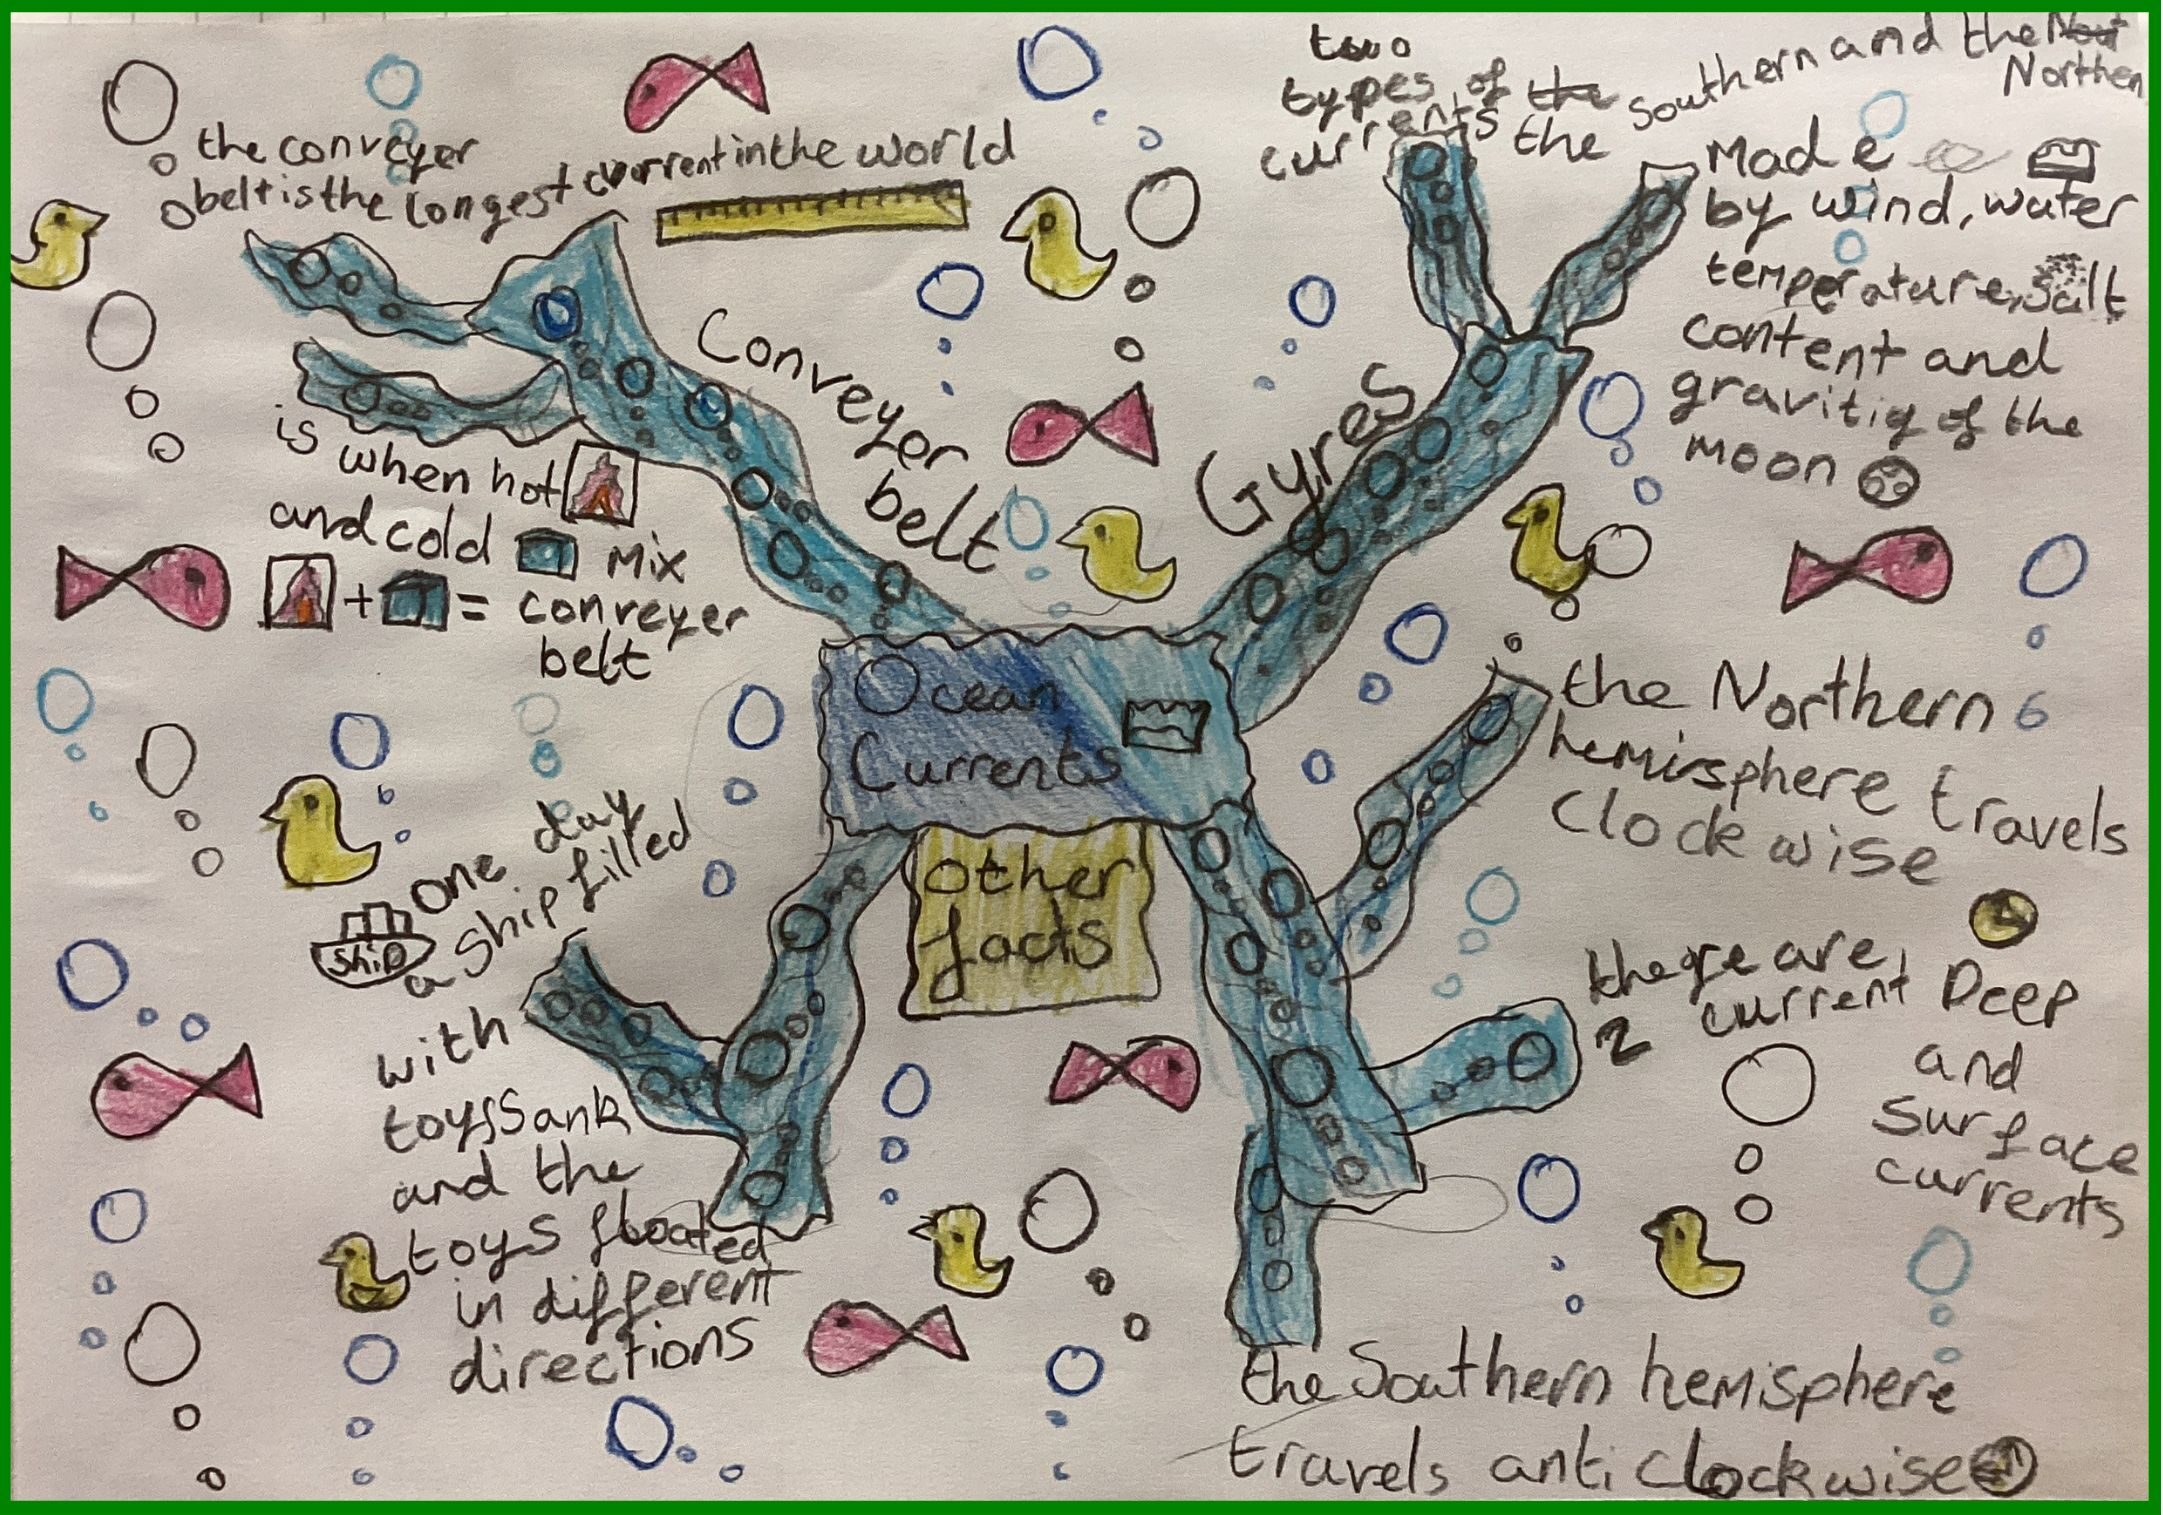 the conveyer
belt is the longest current in the world
Conveyer
belt
is when hot
and cold mix
+ = conveyer
belt
two
types of the southern and the
currents the Northen
Gyres
Made
by wind, water
temperature, salt
content and
gravitiy of the
moon
Ocean
Currents
other
facts
the Northern
hemisphere travels
Clockwise
there are
2 current Deep
and
Surface
currents
the Southern hemisphere
travels anti clockwise
one day
ship a ship filled
with
toys Sank
and the
toys floated
in different
directions